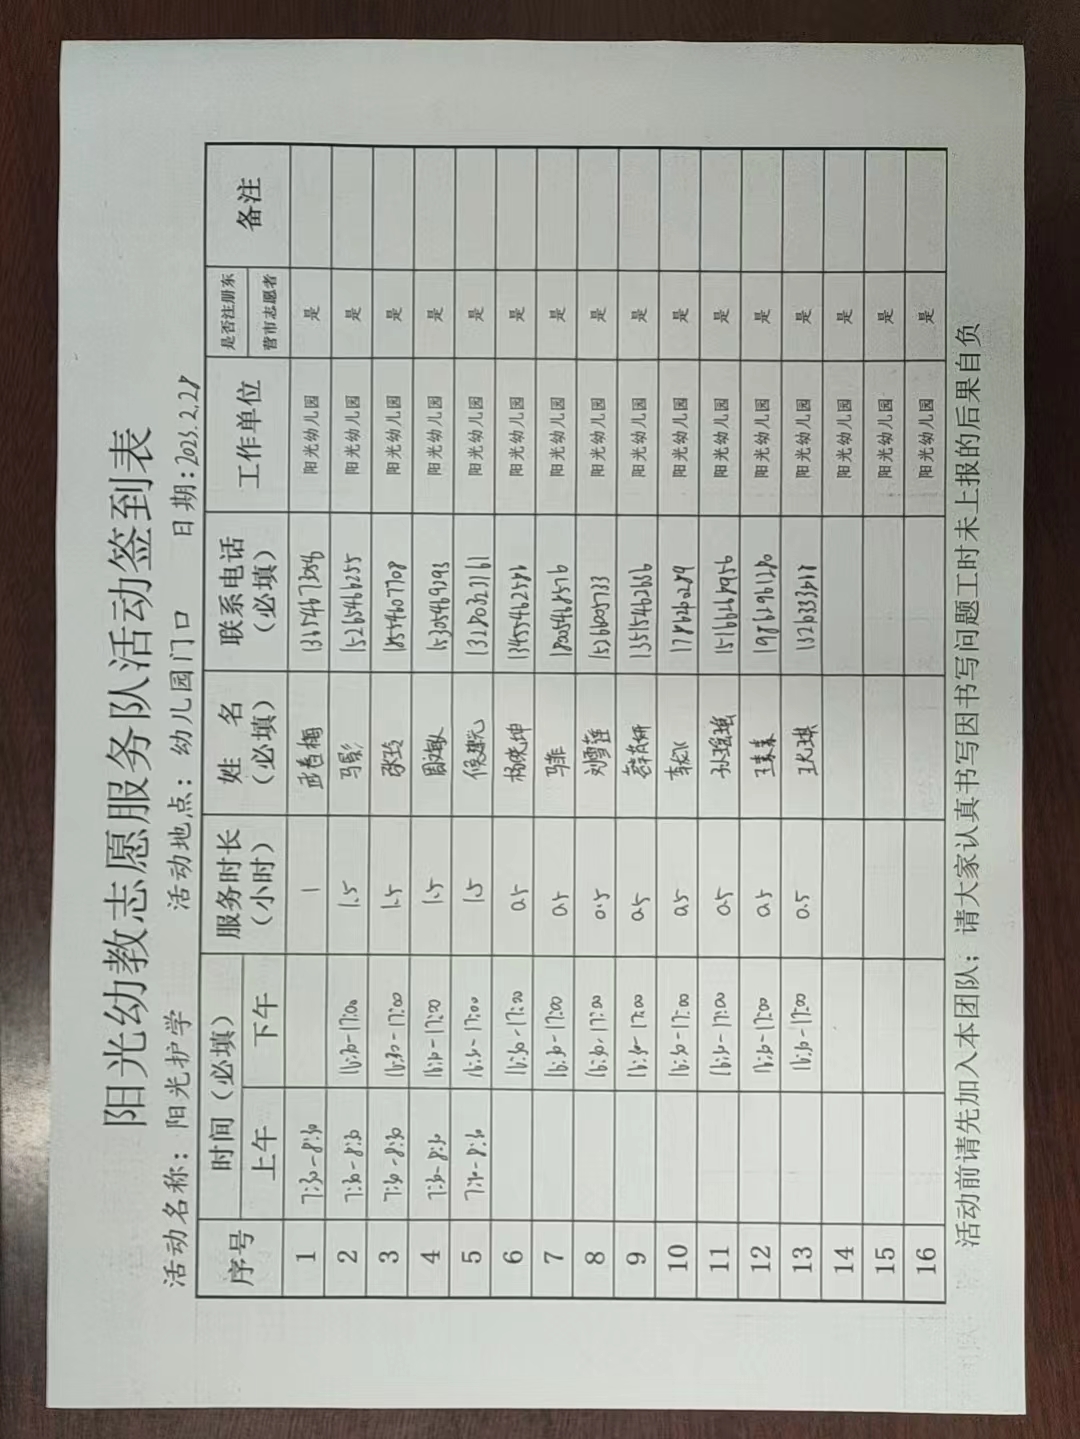 阳光幼教志愿服务队活动签到表
活动名称：阳光护学 活动地点：幼儿园门口 日期：2023.2.28
序号 时间（必填） 服务时长（小时） 姓 名（必填） 联系电话（必填） 工作单位 是否注册东营市志愿者 备注
上午 下午
1 7:30-8:30 1 武春梅 阳光幼儿园 是
2 7:30-8:30 16:30-17:00 1.5 马影 15265466255 阳光幼儿园 是
3 7:30-8:30 16:30-17:00 1.5 张玲 18554607708 阳光幼儿园 是
4 7:30-8:30 16:30-17:00 1.5 周海敏 15305469293 阳光幼儿园 是
5 7:30-8:30 16:30-17:00 1.5 侯建元 13280323161 阳光幼儿园 是
6 16:30-17:00 0.5 杨晓坤 13455462586 阳光幼儿园 是
7 16:30-17:00 0.5 马菲 18005468576 阳光幼儿园 是
8 16:30-17:00 0.5 刘雪莲 15266005733 阳光幼儿园 是
9 16:30-17:00 0.5 13515462636 阳光幼儿园 是
10 16:30-17:00 0.5 17862602189 阳光幼儿园 是
11 16:30-17:00 0.5 孙瑶瑶 15166268956 阳光幼儿园 是
12 16:30-17:00 0.5 王春春 19862961280 阳光幼儿园 是
13 16:30-17:00 0.5 阳光幼儿园 是
14 阳光幼儿园 是
15 阳光幼儿园 是
16 阳光幼儿园 是
活动前请先加入本团队；请大家认真书写因书写问题工时未上报的后果自负